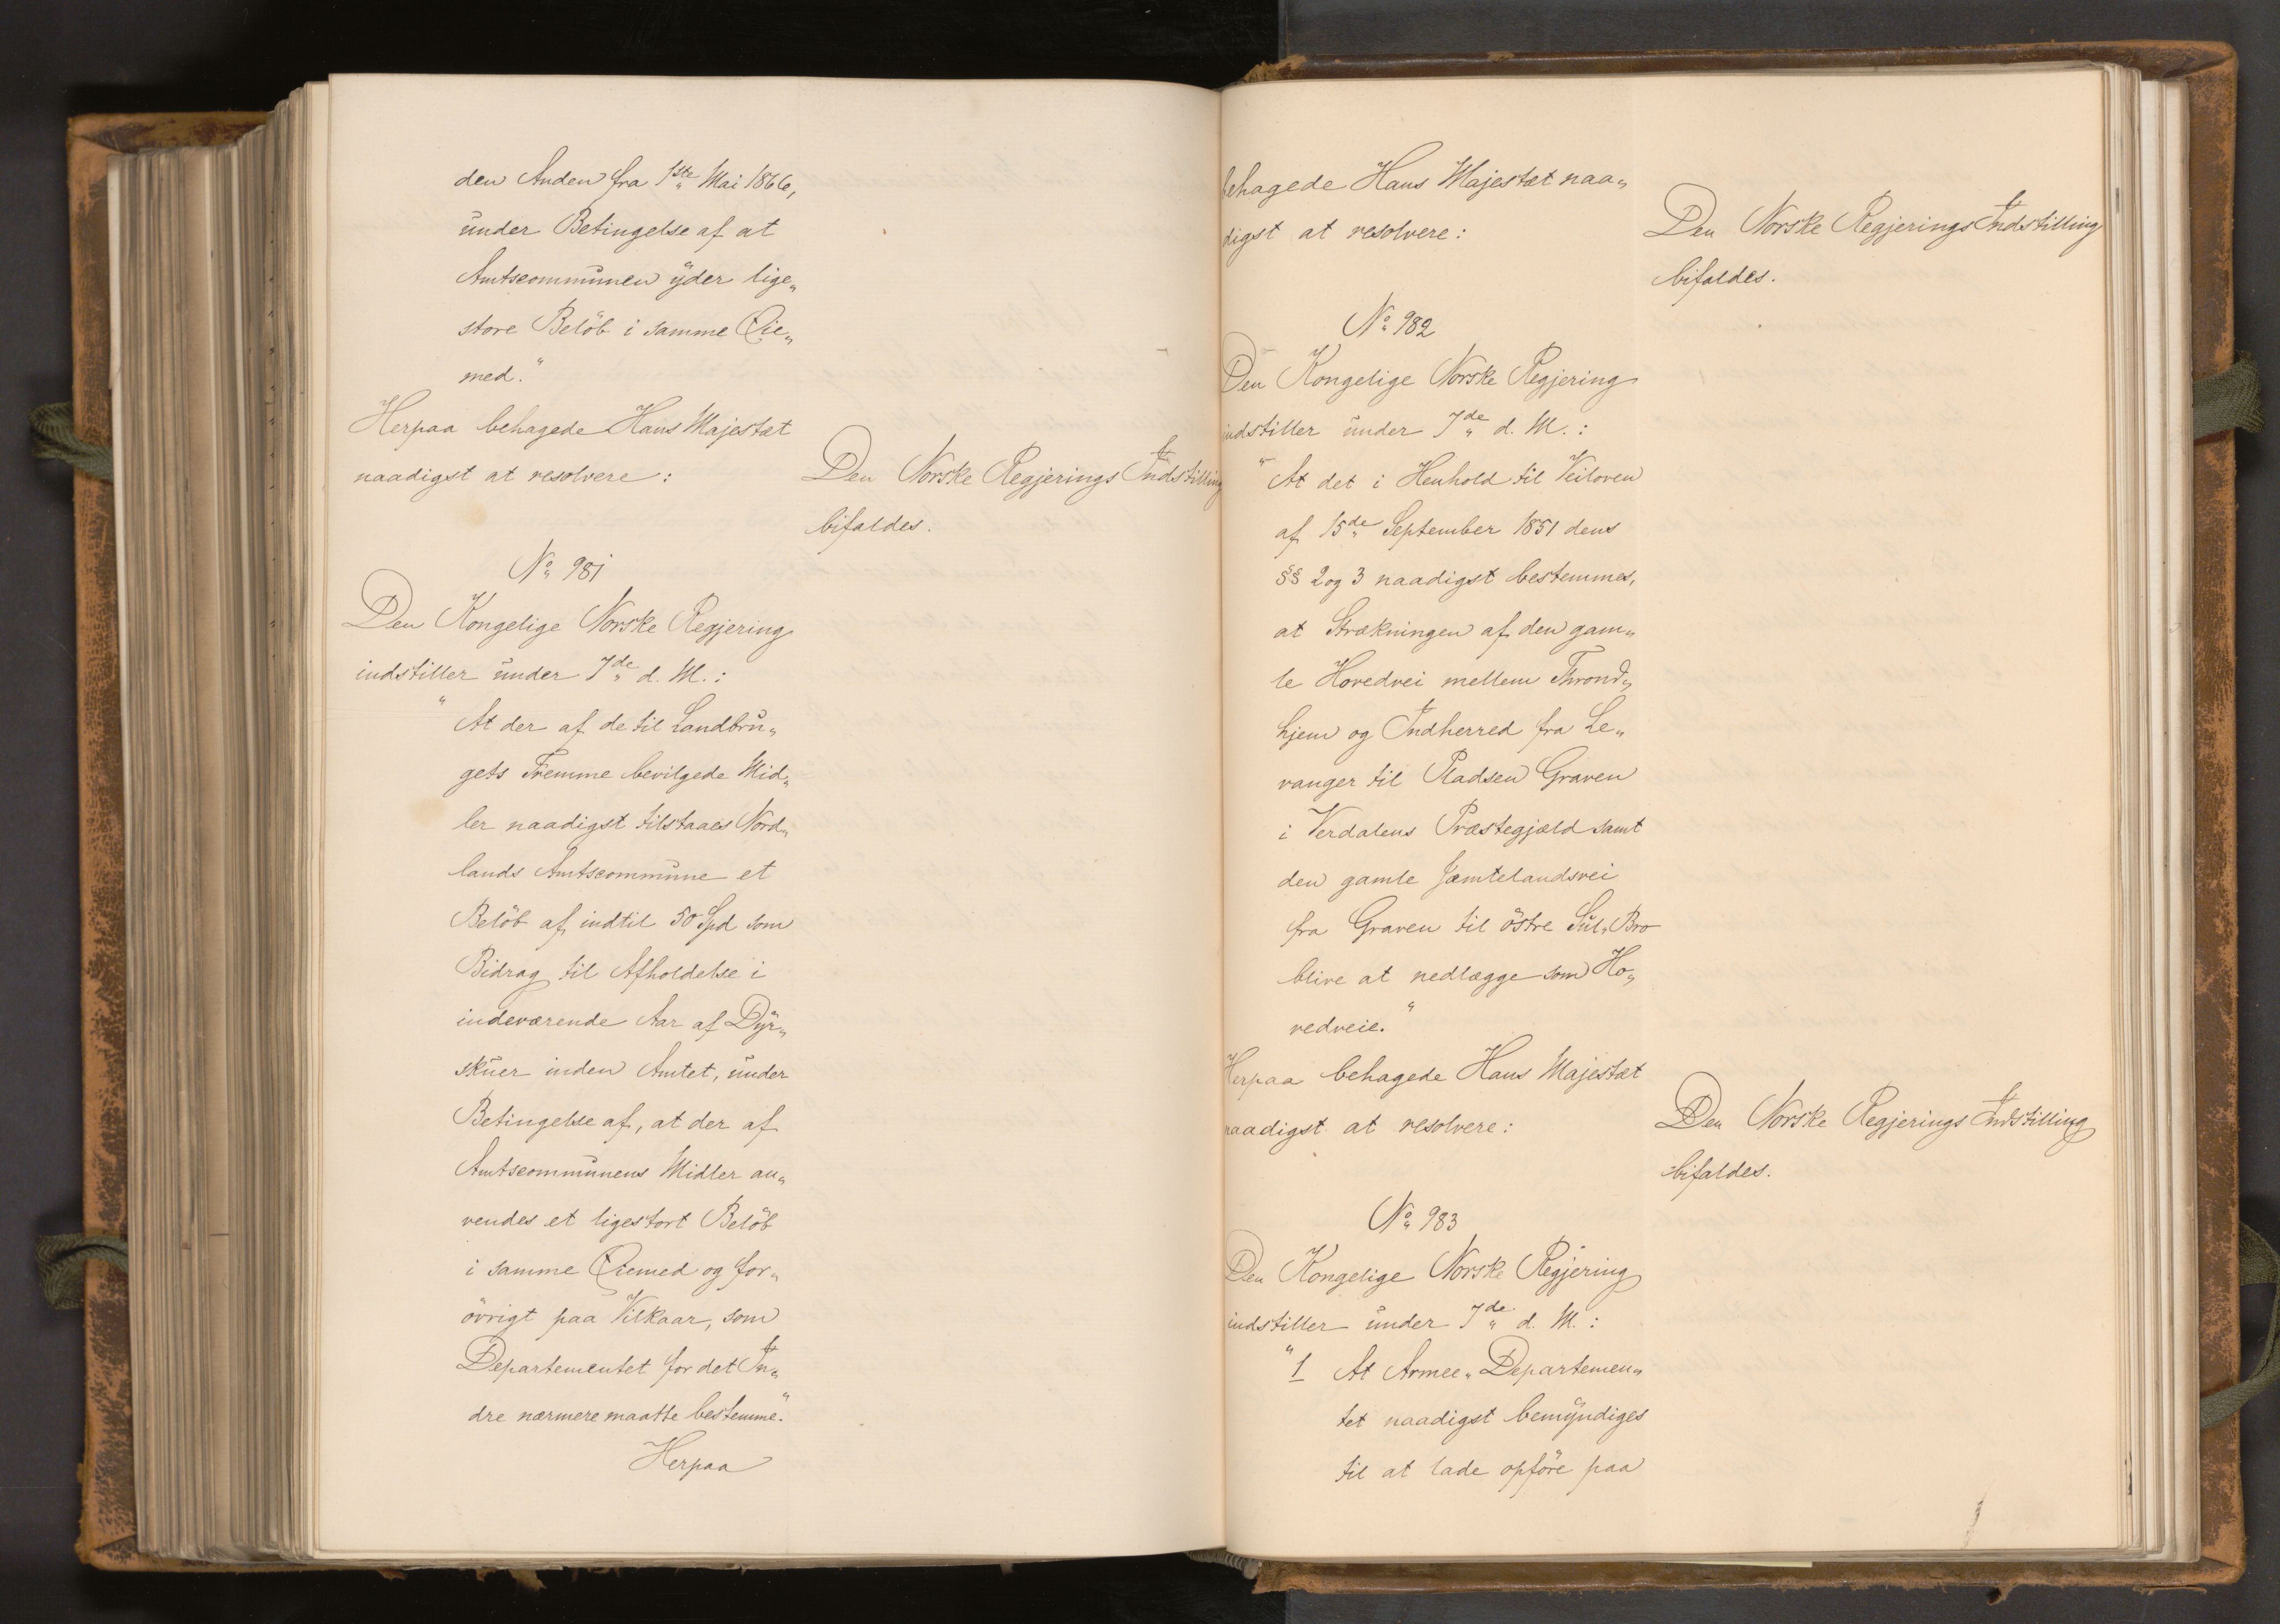 den Anden fra 1ste Mai 1866,
under Betingelse af at
Amtscommunen yder lige„
store Belöb i samme Øie„
med."
Herpaa behagede Hans Majestæt
naadigst at resolvere:
Den Norske Regjerings Indstilling
bifaldes.
No 981
Den Kongelige Norske Regjering
indstiller under 7de d. M.:
"At der af de til Landbru„
gets Fremme bevilgede Mid„
ler naadigst tilstaaes Nord„
lands Amtscommune et
Belöb af indtil 50 Spd som
Bidrag til Afholdelse i
indeværende Aar af Dyr„
skuer inden Amtet, under
Betingelse af, at der af
Amtscommunens Midler an„
vendes et ligestort Belöb
i samme Øiemed og for„
övrigt paa Vilkaar, som
Departementet for det In„
dre nærmere maatte bestemme."
Herpaa
behagede Hans Majestæt naa„
digst at resolvere:
Den Norske Regjerings Indstilling
bifaldes.
No 982
Den Kongelige Norske Regjering
indstiller under 7de d. M.:
"At det i Henhold til Veiloven
af 15de September 1851 dens
§§ 2 og 3 naadigst bestemmes,
at Strækningen af den gam„
le Hovedvei mellem Thrond„
hjem og Indherred fra Le„
vanger til Pladsen Graven
i Verdalens Præstegjæld samt
den gamle Jæmtelandsvei
fra Graven til östre Sul„Bro
blive at nedlægge som Ho„
vedveie."
Herpaa behagede Hans Majestæt
naadigst at resolvere:
Den Norske Regjerings Indstilling
bifaldes.
No 983
Den Kongelige Norske Regjering
indstiller under 7de d. M.:
"1 At Armee„Departemen„
tet naadigst bemyndiges
til at lade opföre paa